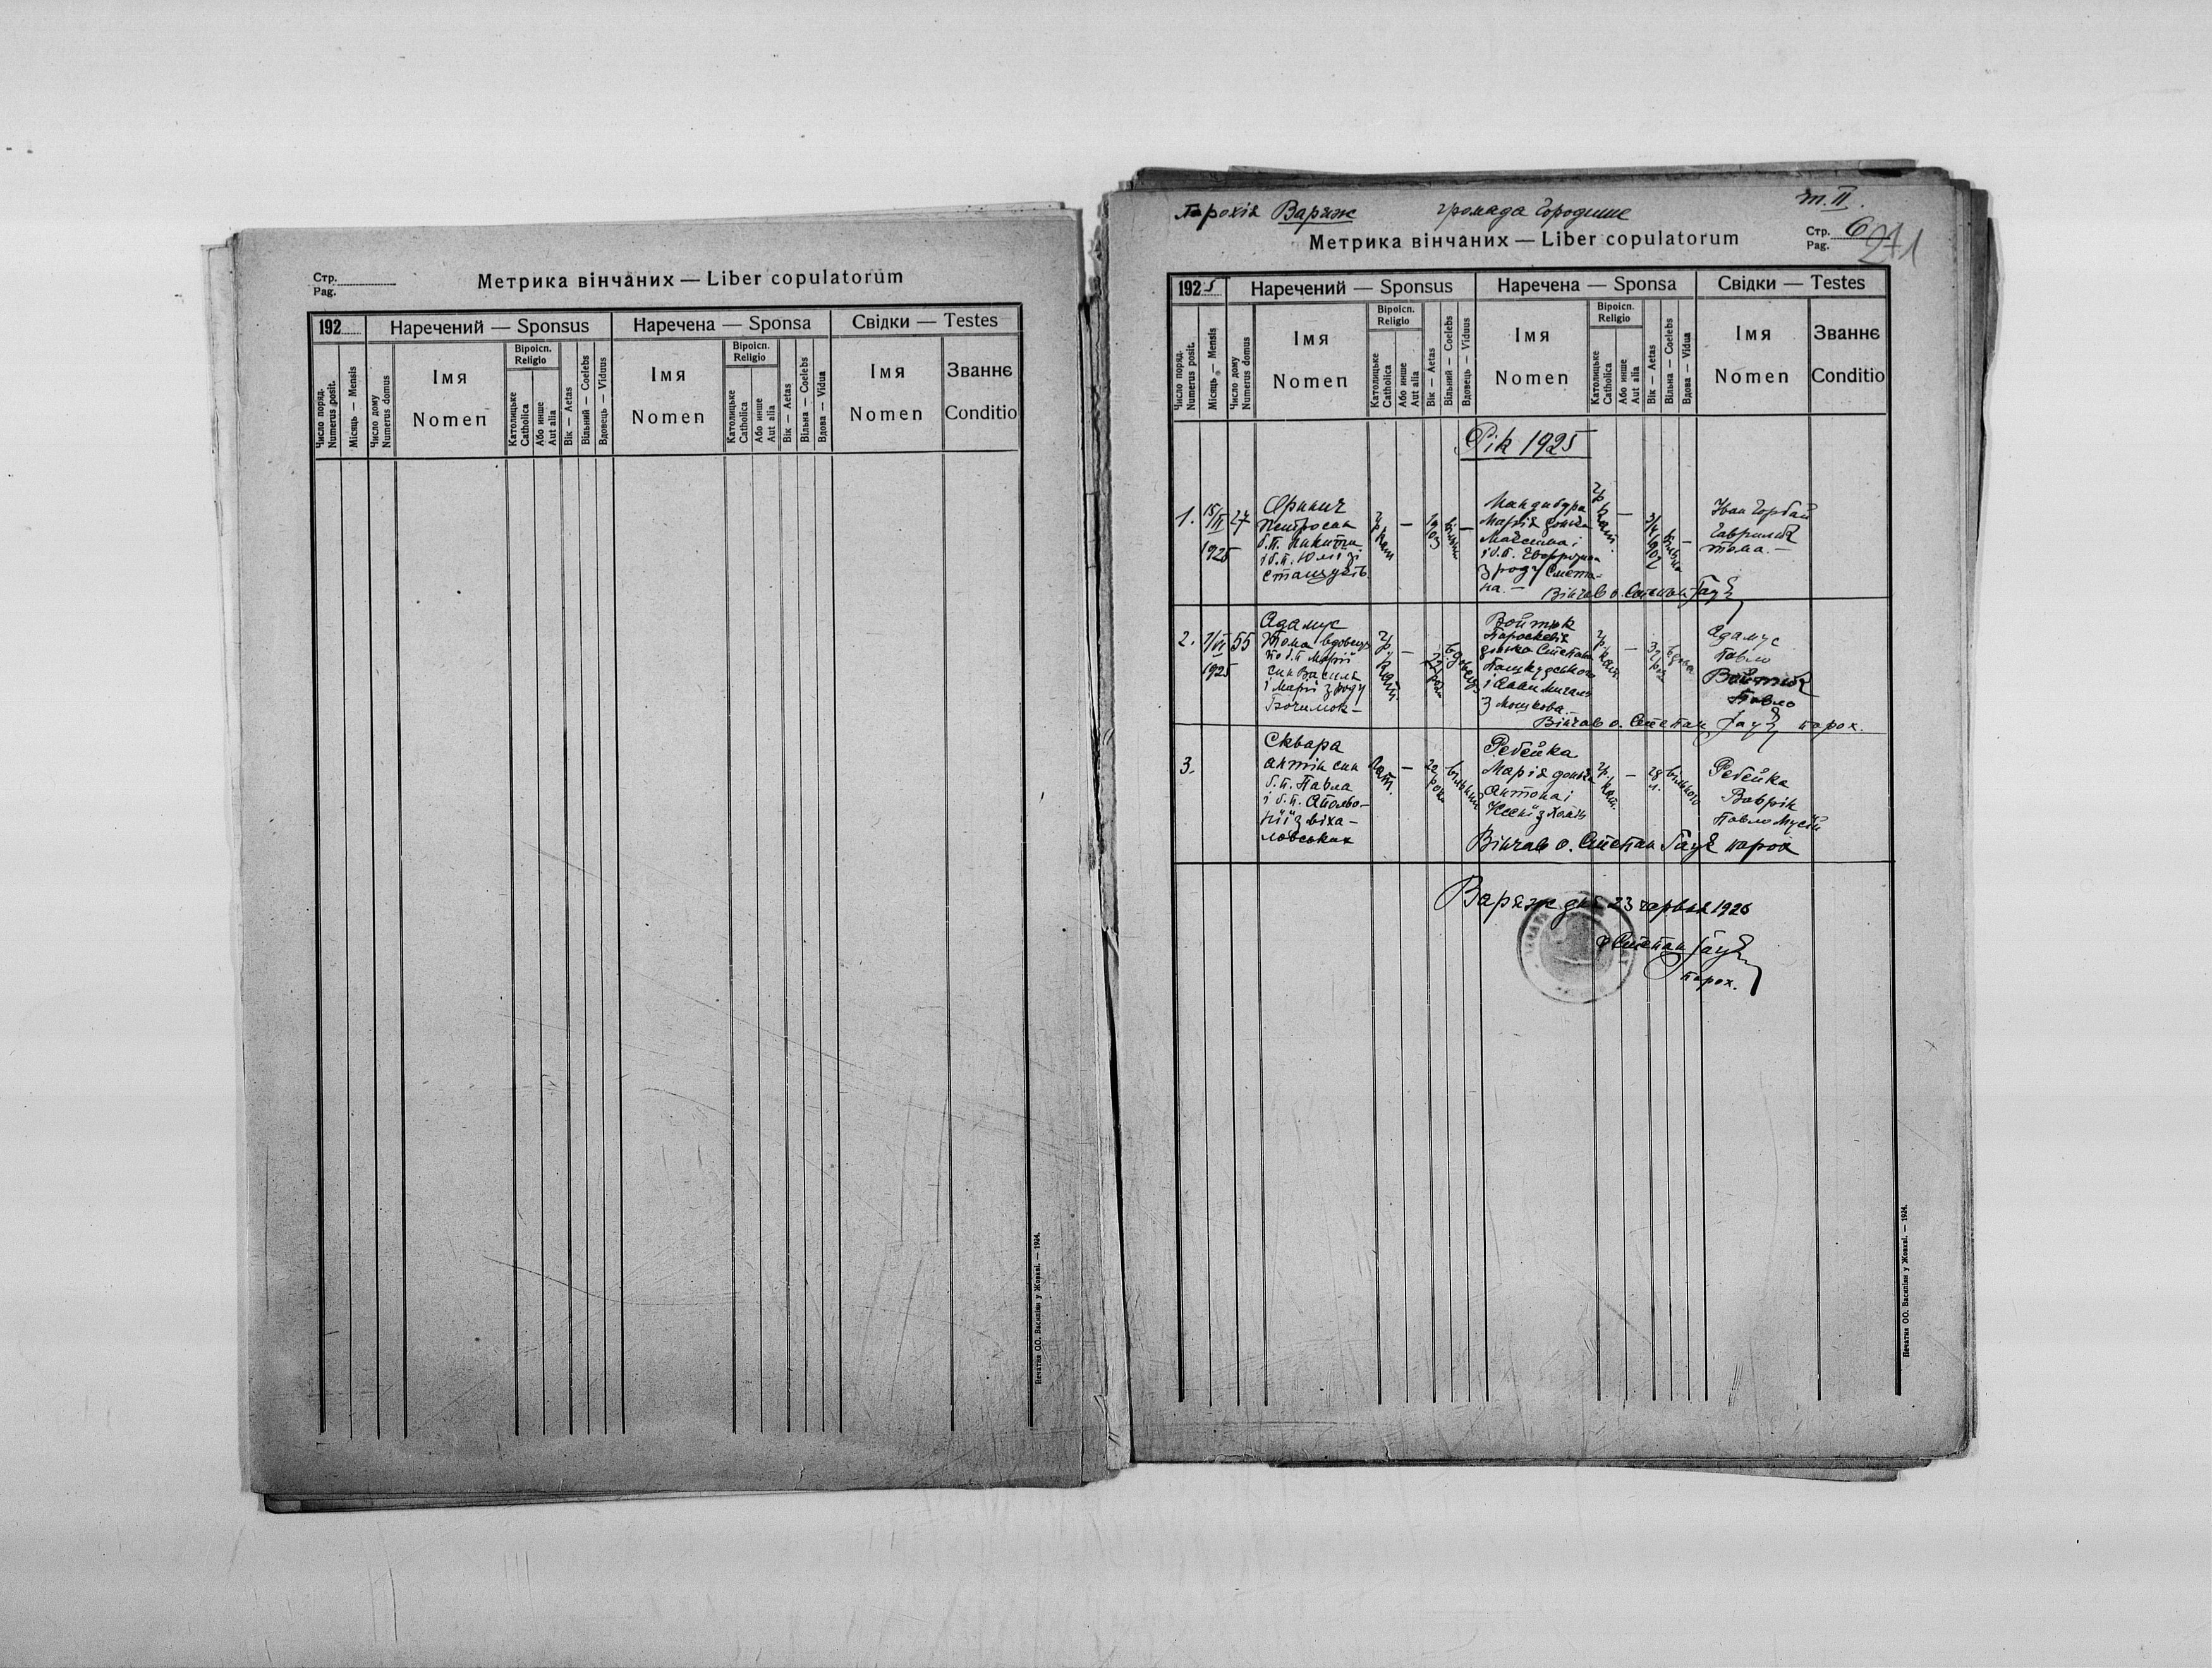 Стр.
Pag.
Метрика вінчаних — Liber copulatorum
192
Наречений — Sponsus
Наречена — Sponsa
Свідки — Testes
Число поряд.
Numerus posit.
Місяць — Mensis
Число дому
Numerus domus
Імя
Nomen
Віроісп.
Religio
Католицьке
Catholica
Або инше
Aut alia
Вік — Aetas
Вільний — Coelebs
Вдовець — Viduus
Імя
Nomen
Віроісп.
Religio
Католицьке
Catholica
Або инше
Aut alia
Вік — Aetas
Вільна — Coelebs
Вдова — Vidua
Імя
Nomen
Званнє
Conditio
Печатня ОО. Василіян у Жовкві. — 1924.
Парохія Варяж
громада Городище
т. II.
Метрика вінчаних — Liber copulatorum
Стр.
Pag.
6
271
1925
Наречений — Sponsus
Наречена — Sponsa
Свідки — Testes
Число поряд.
Numerus posit.
Місяць — Mensis
Число дому
Numerus domus
Імя
Nomen
Віроісп.
Religio
Католицьке
Catholica
Або инше
Aut alia
Вік — Aetas
Вільний — Coelebs
Вдовець — Viduus
Імя
Nomen
Віроісп.
Religio
Католицьке
Catholica
Або инше
Aut alia
Вік — Aetas
Вільна — Coelebs
Вдова — Vidua
Імя
Nomen
Званнє
Conditio
Рік 1925
1.
1925
27
б.п. Микити
і б.п. Юлії зі
гр кат
—
1903
—
Мандибура
Марія донька
Максима і
і б.п.
з роду Смета-
на. —
гр. кат.
—
—
Іван Горбай
Гаврилюк
тома. —
Вінчав о. Степан
2.
1/VI
1925
55
Адамус
Тома вдовець
по б.п Марії
син Василя
і Марії з роду
гр. кат.
—
вдовець
Войтюк
Параскевія
донька Степана
і Анни
гр. кат.
—
вдова
Адамус
Павло
Войтюк
Павло
Вінчав о. Степан парох.
3.
Сквара
антін син
б.п. Павла
і б.п. Апольо-
нії з віха-
ловських
лат.
—
22 рок
вільний
Ребейка
Марія донька
Антона і
гр. кат.
—
28 л.
вільного
Ребейка
Павло Мусій
Вінчав о. Степан парох
Варяж дня 23 червня 1925
о Степан
парох.
Печатня ОО. Василіян у Жовкві. — 1924.